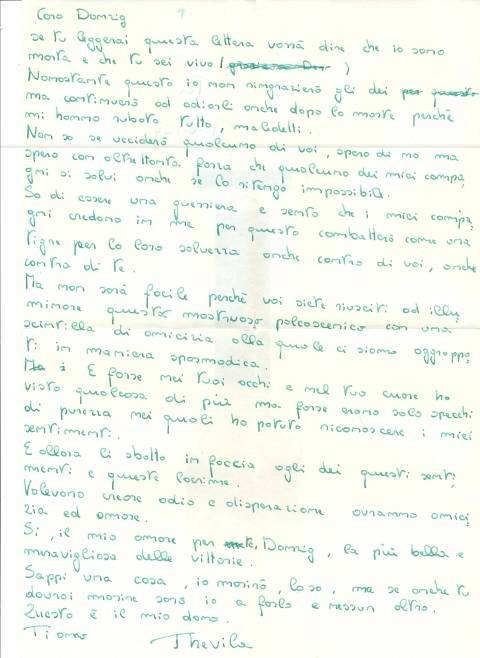 Caro Domzig
se tu leggerai questa lettera vorrà dire che io sono
morta e che tu sei vivo ( )
Nonostante questo io non ringrazierò gli dei per questo
ma continuerò ad odiarli anche dopo la morte perché
mi hanno rubato tutto, maledetti.
Non so se ucciderò qualcuno di voi, spero di no ma
spero con altrettanta forza che qualcuno dei miei compa
gni si salvi anche se lo ritengo impossibile.
So di essere una guerriera e sento che i miei compa
gni credono in me per questo combatterò come una
tigre per la loro salvezza anche contro di voi, anche
contro di te.
Ma non sarà facile perché voi siete riusciti ad illu
minare questo mostruoso palcoscenico con una
scintilla di amicizia alla quale ci siamo aggrappa
ti in maniera spasmodica.
Ma E forse nei tuoi occhi e nel tuo cuore ho
visto qualcosa di più ma forse erano solo specchi
di purezza nei quali ho potuto riconoscere i miei
sentimenti.
E allora li sbatto in faccia agli dei questi senti
menti e queste lacrime.
Volevano creare odio e disperazione avranno amici
zia ed amore.
Sì, il mio amore per te, Domzig, la più bella e
meravigliosa delle vittorie.
Sappi una cosa, io morirò, lo so, ma se anche tu
dovrai morire sarò io a farlo e nessun altro.
Questo è il mio dono.
Ti amo Thevila